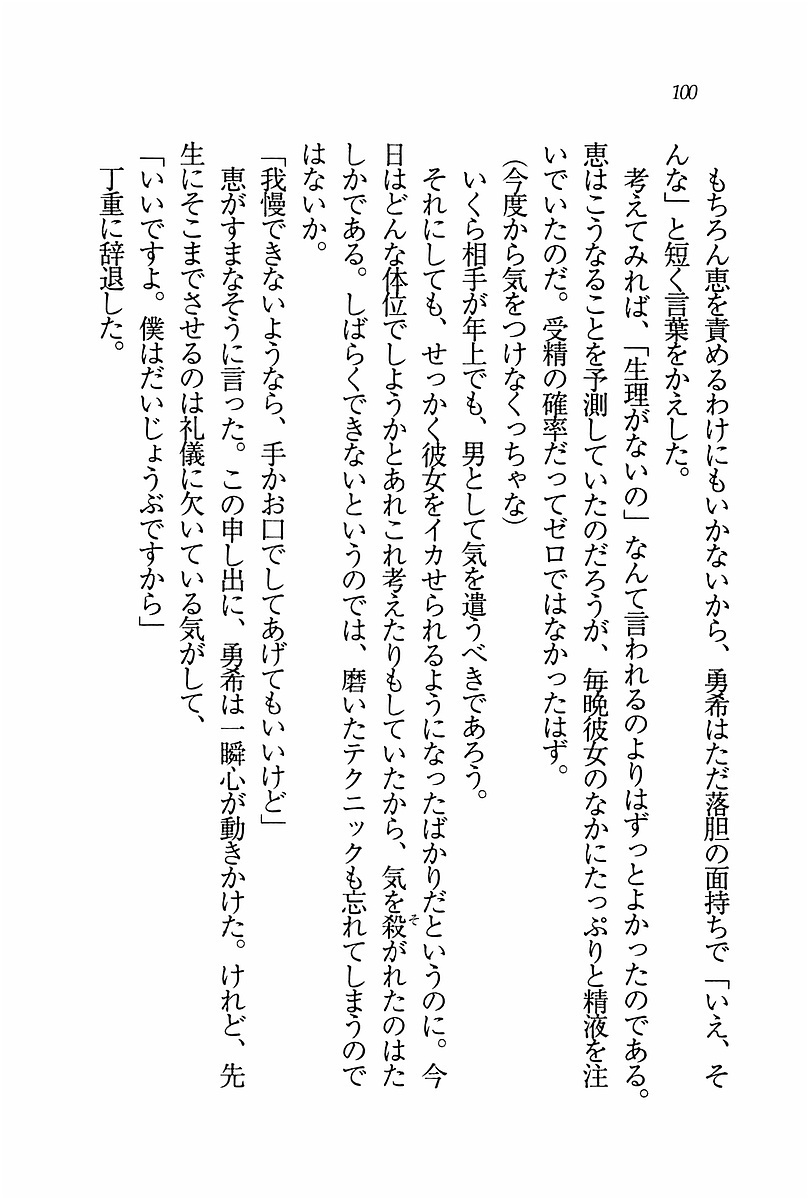 100
もちろん恵を責めるわけにもいかないから、勇希はただ落胆の面持ちで「いえ、そ
んな」と短く言葉をかえした。
考えてみれば、「生理がないの」なんて言われるのよりはずっとよかったのである。
恵はこうなることを予測していたのだろうが、毎晩彼女のなかにたっぷりと精液を注
いでいたのだ。受精の確率だってゼロではなかったはず。
（今度から気をつけなくっちゃな）
いくら相手が年上でも、男として気を遣うべきであろう。
それにしても、せっかく彼女をイカせられるようになったばかりだというのに。今
日はどんな体位でしようかとあれこれ考えたりもしていたから、気を殺がれたのはた
しかである。しばらくできないというのでは、磨いたテクニックも忘れてしまうので
はないか。
「我慢できないようなら、手かお口でしてあげてもいいけど」
恵がすまなそうに言った。この申し出に、勇希は一瞬心が動きかけた。けれど、先
生にそこまでさせるのは礼儀に欠いている気がして、
「いいですよ。僕はだいじょうぶですから」
丁重に辞退した。